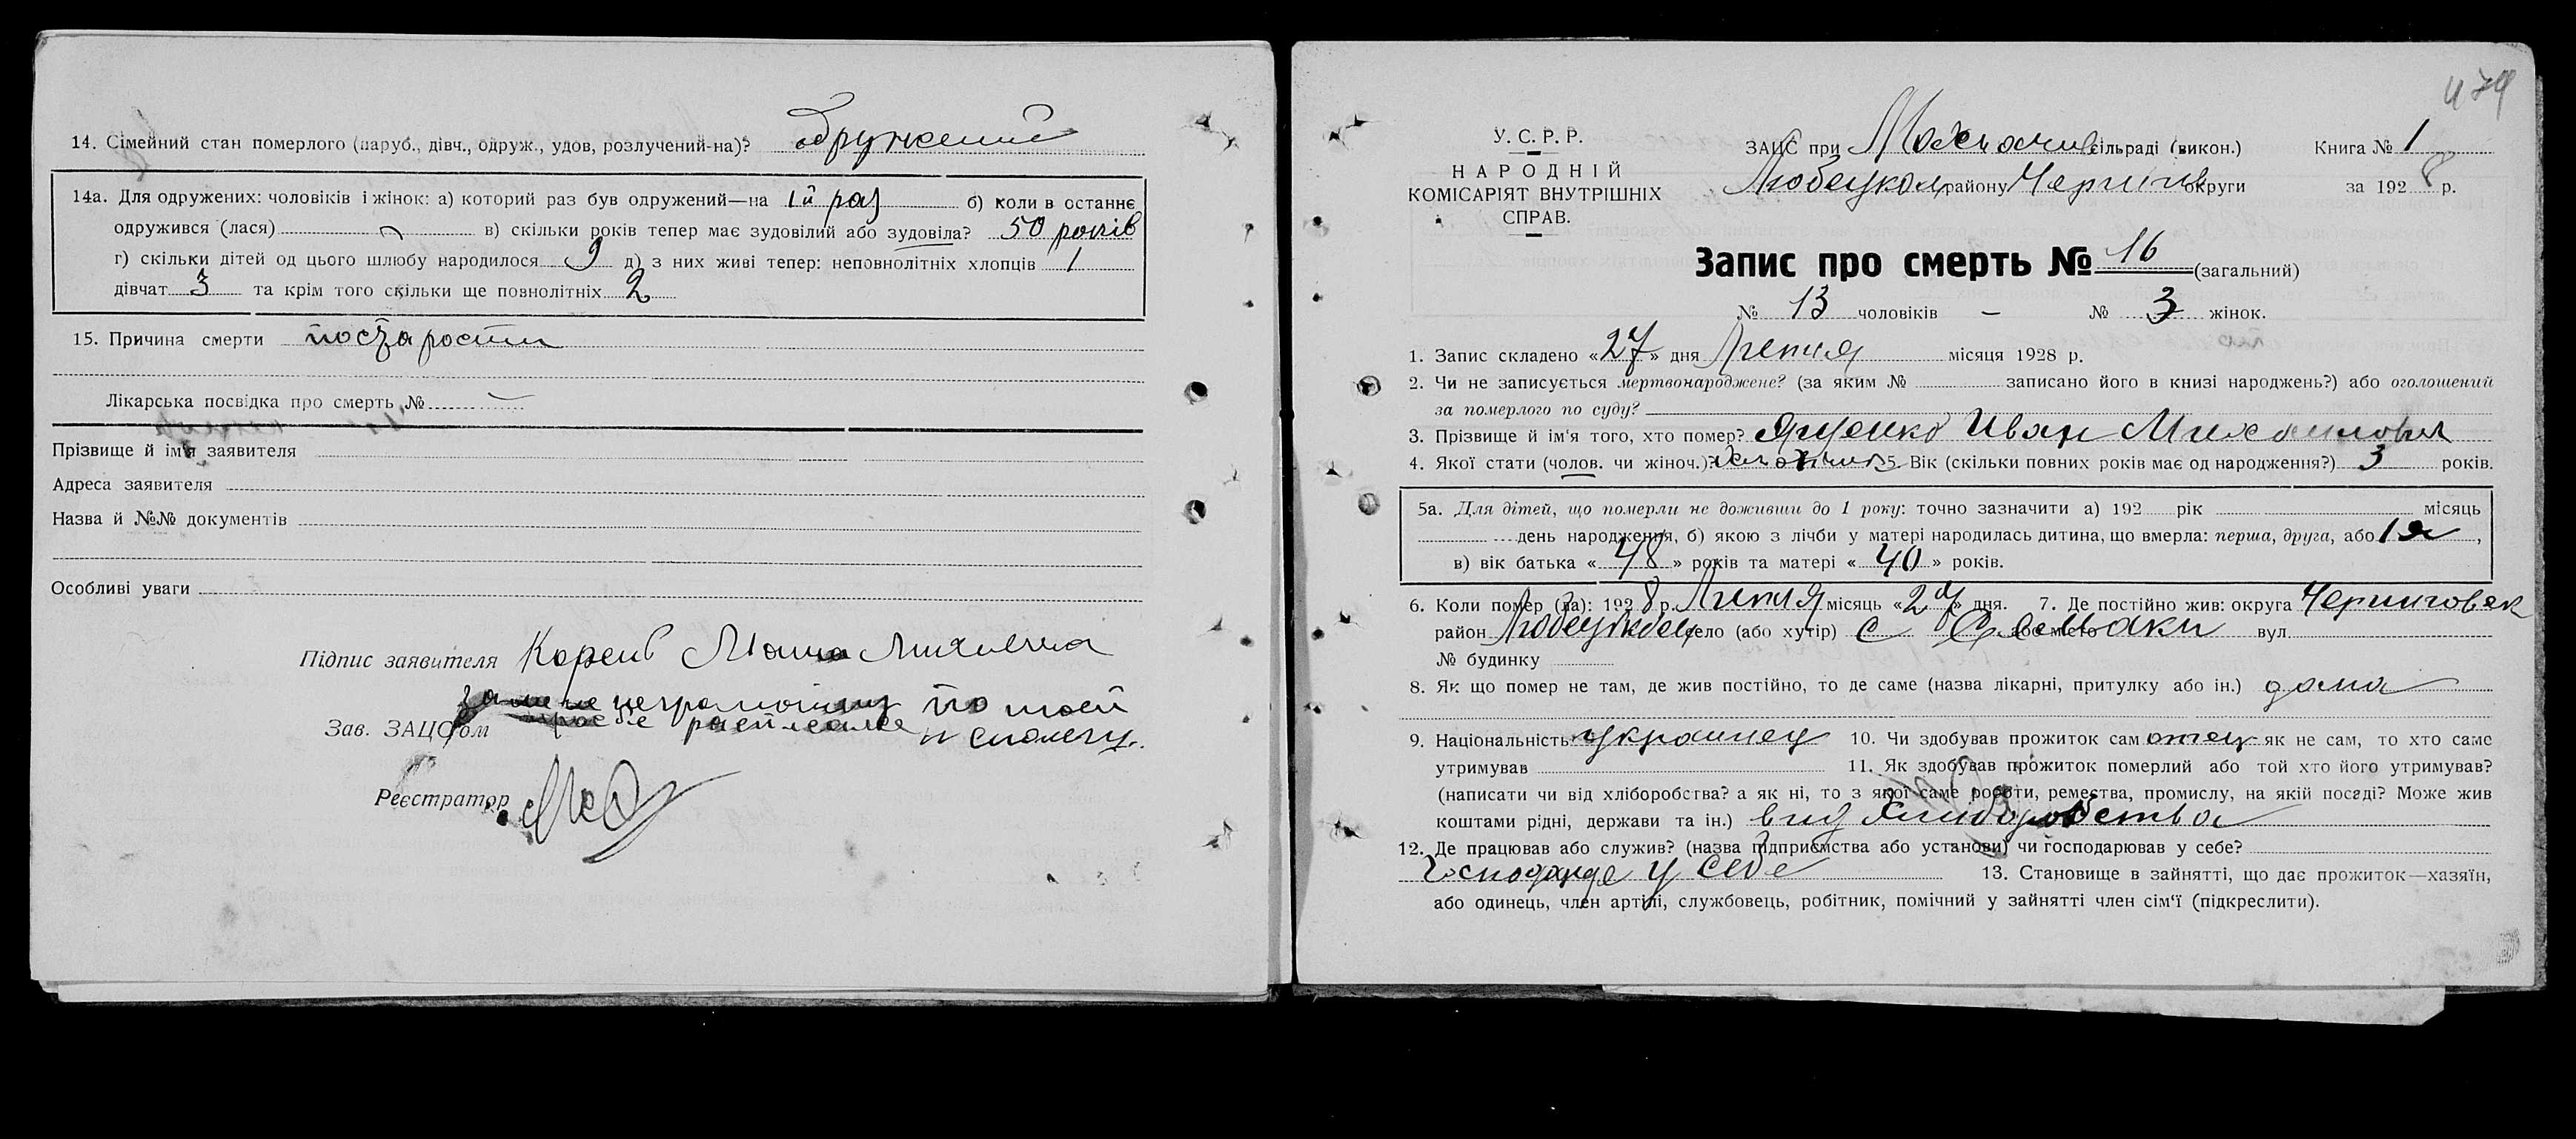 14. Сімейний стан померлого (паруб., дівч., одруж., удов, розлучений-на)? одружений
14а. Для одружених: чоловіків і жінок: а) которий раз був одружений—на 1й раз б) коли в останнє
одружився (лася) в) скільки років тепер має зудовілий або зудовіла? 50 років
г) скільки дітей од цього шлюбу народилося 9 д) з них живі тепер: неповнолітніх хлопців 1
дівчат 3 та крім того скільки ще повнолітніх 2
15. Причина смерти по старости
Лікарська посвідка про смерть № —
Прізвище й ім'я заявителя
Адреса заявителя
Назва й №№ документів
Особливі уваги
Підпис заявителя
по моей
Зав. ЗАЦСом просбе расписался
Реєстратор
479
У.С.Р.Р.
НАРОДНІЙ
КОМІСАРІЯТ ВНУТРІШНІХ
СПРАВ.
ЗАЦС при сільраді (викон.) Книга № 1
Любецком району Чернигів округи за 1928 р.
Запис про смерть № 16 (загальний)
№ 13 чоловіків — № 3 жінок.
1. Запис складено «27» дня Липня місяця 1928 р.
2. Чи не записується мертвонароджене? (за яким № записано його в книзі народжень?) або оголошений
за померлого по суду?
3. Прізвище й ім'я того, хто помер? Ященко Иван Михаилович
4. Якої стати (чолов. чи жіноч.)? 5. Вік (скільки повних років має од народження?) 3 років.
5а. Для дітей, що померли не доживши до 1 року: точно зазначити а) 192 рік місяць
день народження, б) якою з лічби у матері народилась дитина, що вмерла: перша, друга, або 1я,
в) вік батька «48» років та матері «40» років.
6. Коли помер (ла): 1928 р. Липня місяць «27» дня. 7. Де постійно жив: округа
район село (або хутір) с або місто вул.
№ будинку
8. Як що помер не там, де жив постійно, то де саме (назва лікарні, притулку або ін.) дома
9. Національність украинец 10. Чи здобував прожиток сам отец як не сам, то хто саме
утримував 11. Як здобував прожиток померлий або той хто його утримував?
(написати чи від хліборобства? а як ні, то з якої саме роботи, ремества, промислу, на якій посаді? Може жив
коштами рідні, держави та ін.) вид хлиборобства
12. Де працював або служив? (назва підприємства або установи) чи господарював у себе?
у себе 13. Становище в зайнятті, що дає прожиток—хазяїн,
або одинець, член артілі, службовець, робітник, помічний у зайнятті член сім'ї (підкреслити).